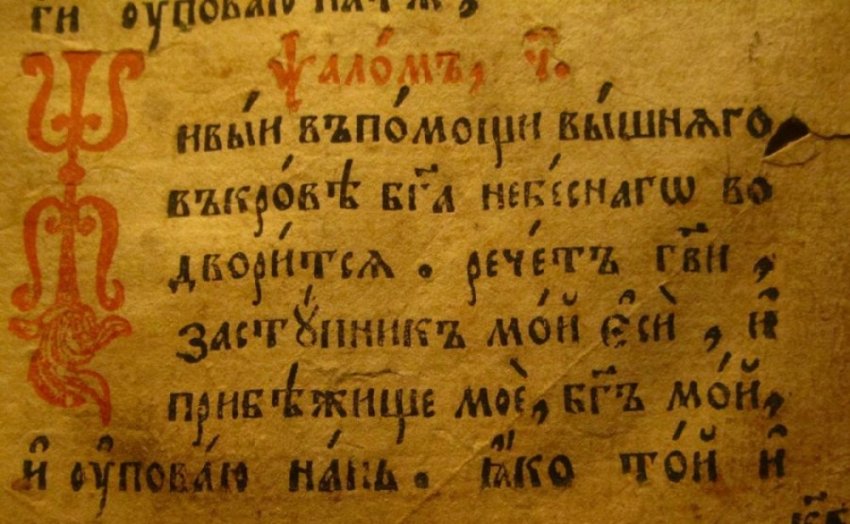 ги оуповаю на тѧ,
Ѱало́мъ, ч҃.
Живы́и въпо́мощи вы́шнѧго
въкро́вѣ бг҃а небе́снагѡ во
двори́тсѧ. рече́тъ гв҃и,
застꙋ́пникъ мо́й є҆сѝ, и҆
прибѣ́жище моѐ, бг҃ъ мо́й,
и҆ оу҆пова́ю на́нь. ꙗ҆́ко то́й и҆